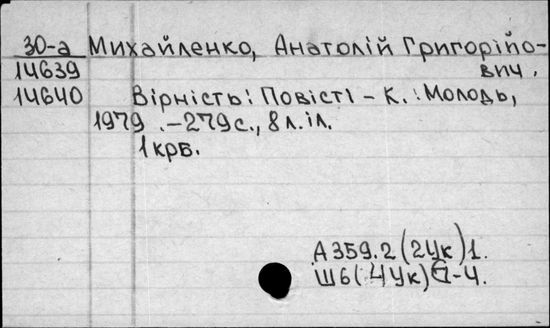 30-а Михайленко, Анатолій Григорійо-
14639 вич.
14640 Вірність: Повісті - К.: Молодь,
1979 .-279с., 8 л.іл.
1 крб.
А359.2(2Ук)1.
Ш6(4Ук)